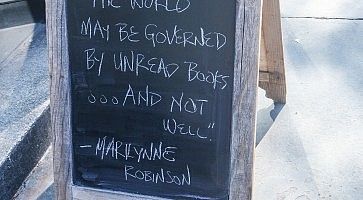 THE WORLD
MAY BE GOVERNED
BY UNREAD BOOKS
...AND NOT
WELL"
- MARILYNNE
ROBINSON